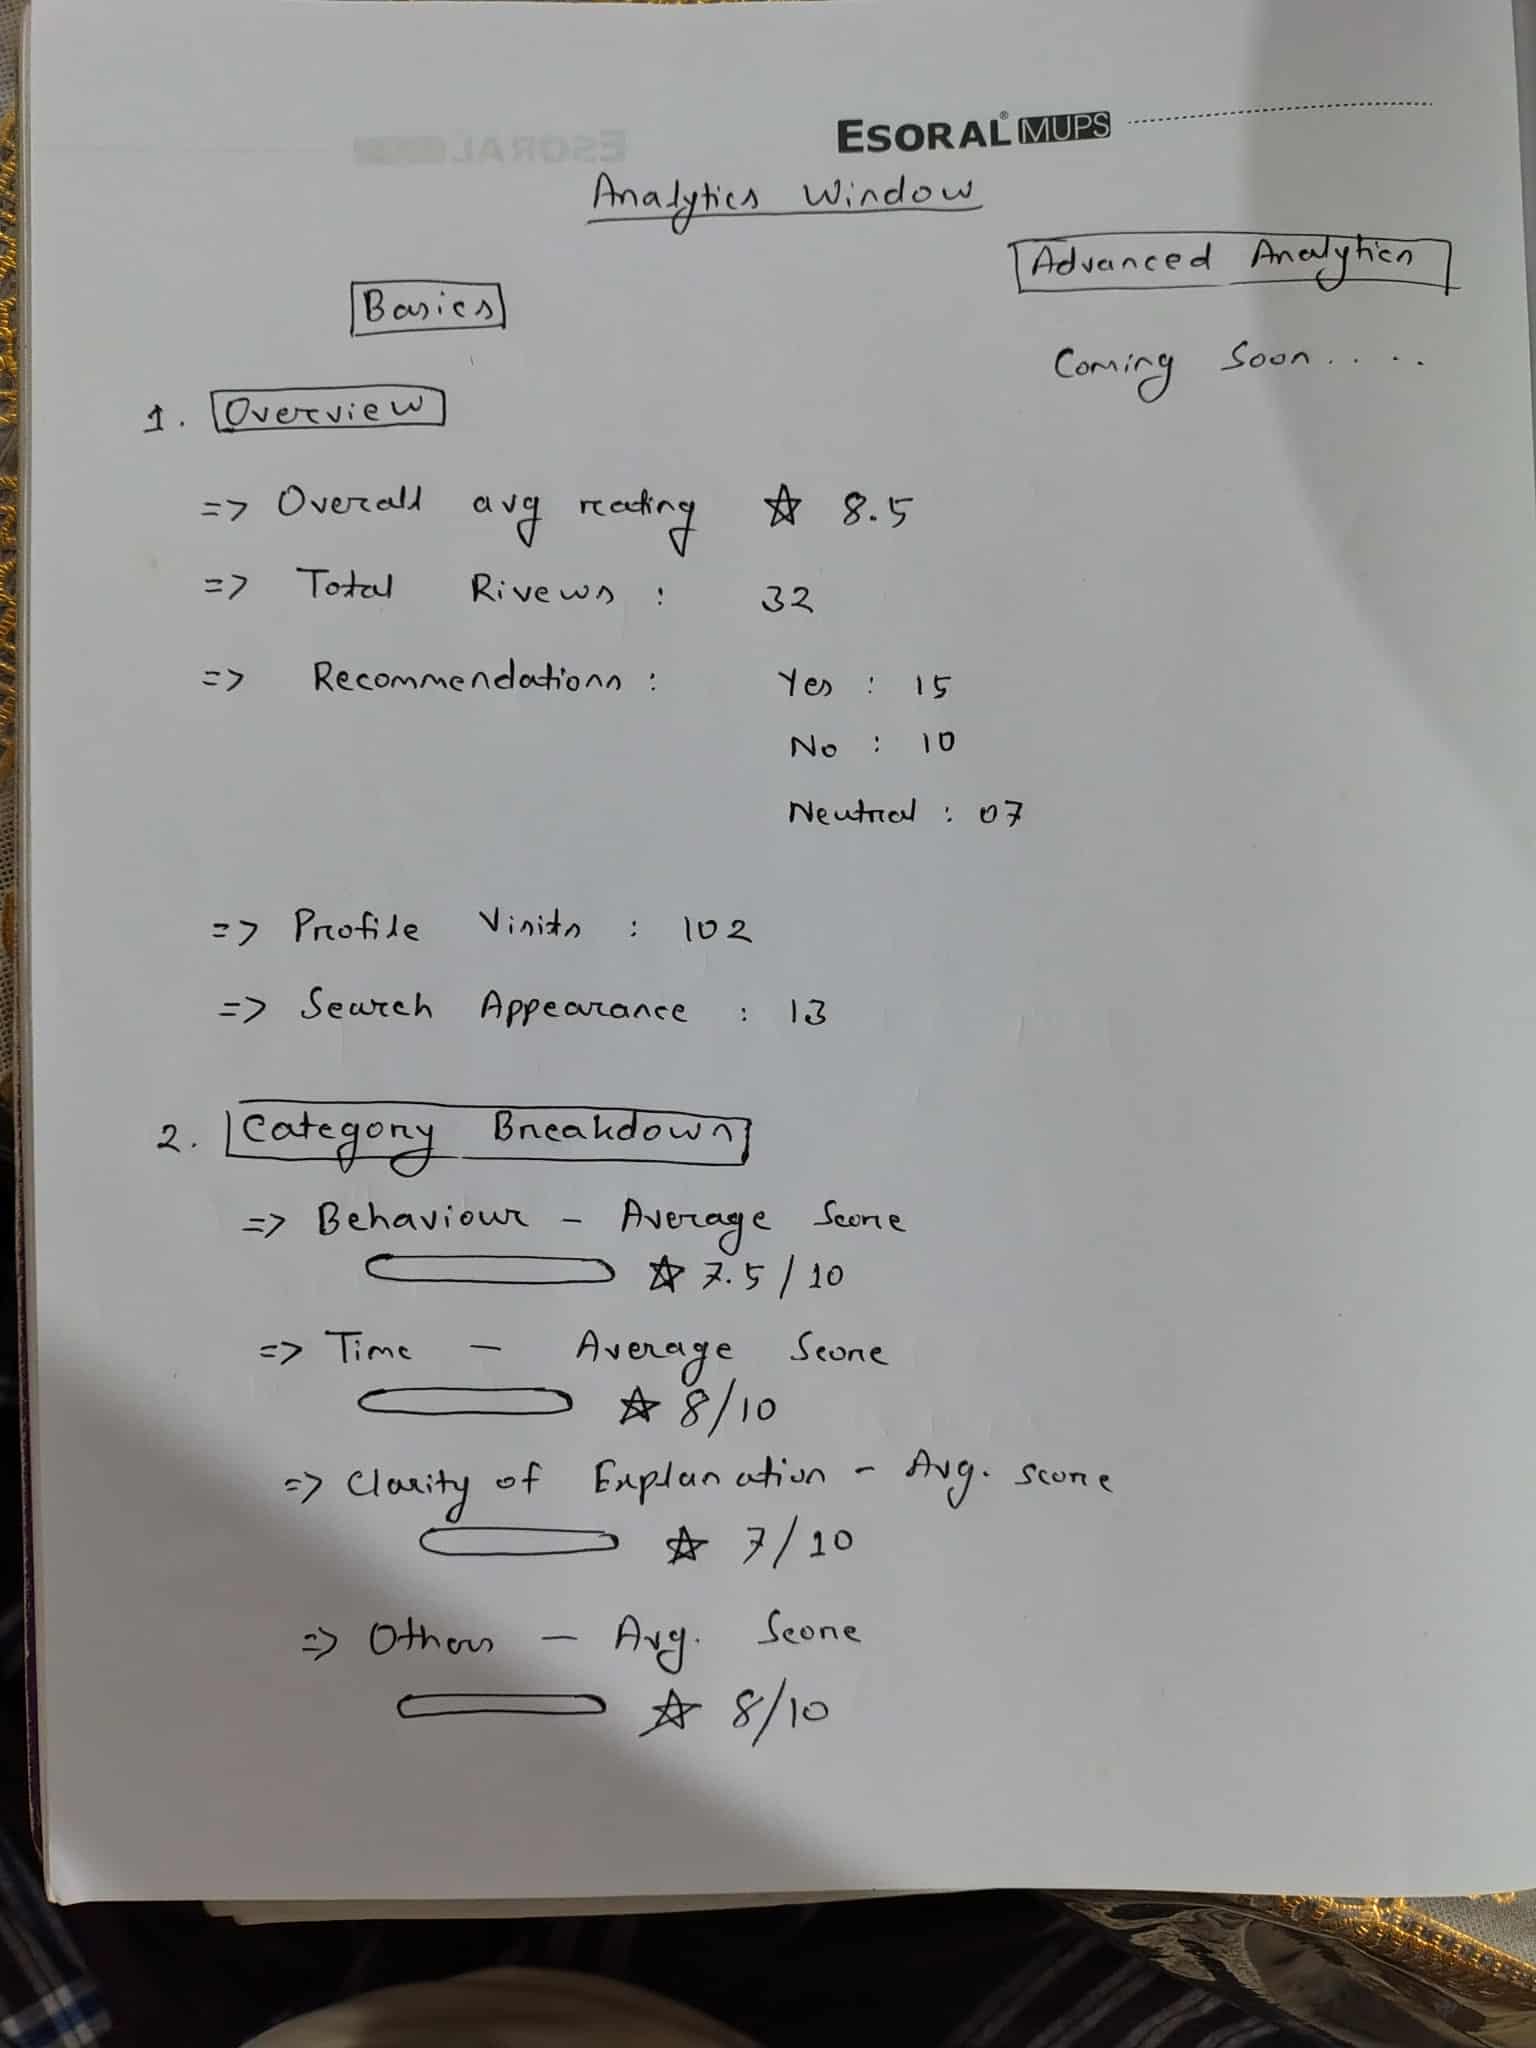 ESORAL® MUPS
Analytics Window
Advanced Analytics
Basics
Coming Soon.....
1. Overview
=> Overall avg rating ☆ 8.5
=> Total Rivews : 32
=> Recommendations : Yes : 15
No : 10
Neutral : 07
=> Profile Visits : 102
=> Search Appearance : 13
2. Category Breakdown
=> Behaviour - Average Score
☆ 7.5/10
=> Time - Average Score
☆ 8/10
=> Clarity of Explanation - Avg. score
☆ 7/10
=> Others - Avg. Score
☆ 8/10